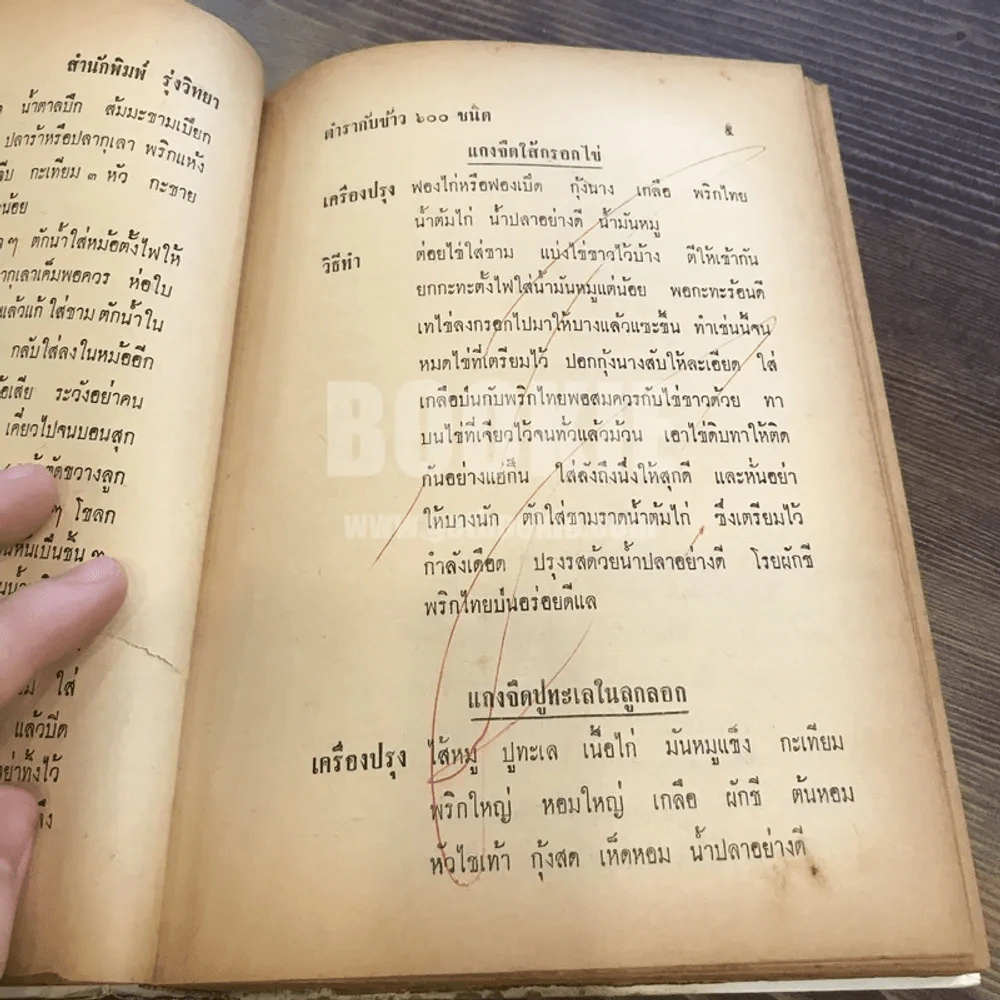 สำนักพิมพ์ รุ่งวิทยา
น้ำตาลปึก ส้มมะขามเปียก
ปลาร้าหรือปลากุเลา พริกแห้ง
กะเทียม ๓ หัว กะชาย
น้อย
ๆ ตักน้ำใส่หม้อตั้งไฟให้
กุเลาเค็มพอควร ห่อใบ
แล้วแก้ ใส่ชาม ตักน้ำใน
กลับใส่ลงในหม้ออีก
เสีย ระวังอย่าคน
เคี่ยวไปจนบอนสุก
ขวางลูก
ๆ โขลก
ใส่
แล้วปิด
ทิ้งไว้
ตำรากับข้าว ๖๐๐ ชนิด ๕
แกงจืดไส้กรอกไข่
เครื่องปรุง ฟองไก่หรือฟองเป็ด กุ้งนาง เกลือ พริกไทย
น้ำต้มไก่ น้ำปลาอย่างดี น้ำมันหมู
วิธีทำ ต่อยไข่ใส่ชาม แบ่งไข่ขาวไว้บ้าง ตีให้เข้ากัน
ยกกะทะตั้งไฟใส่น้ำมันหมูแต่น้อย พอกะทะร้อนดี
เทไข่ลงกรอกไปมาให้บางแล้วแซะขึ้น ทำเช่นนี้จน
หมดไข่ที่เตรียมไว้ ปอกกุ้งนางสับให้ละเอียด ใส่
เกลือป่นกับพริกไทยพอสมควรกับไข่ขาวด้วย ทา
บนไข่ที่เจียวไว้จนทั่วแล้วม้วน เอาไข่ดิบทาให้ติด
กันอย่างแย่กิน ใส่ลังถึงนึ่งให้สุกดี และหั่นอย่า
ให้บางนัก ตักใส่ชามราดน้ำต้มไก่ ซึ่งเตรียมไว้
กำลังเดือด ปรุงรสด้วยน้ำปลาอย่างดี โรยผักชี
พริกไทยป่นอร่อยดีแล
แกงจืดปูทะเลในลูกลอก
เครื่องปรุง ไส้หมู ปูทะเล เนื้อไก่ มันหมูแข็ง กะเทียม
พริกใหญ่ หอมใหญ่ เกลือ ผักชี ต้นหอม
หัวไชเท้า กุ้งสด เห็ดหอม น้ำปลาอย่างดี